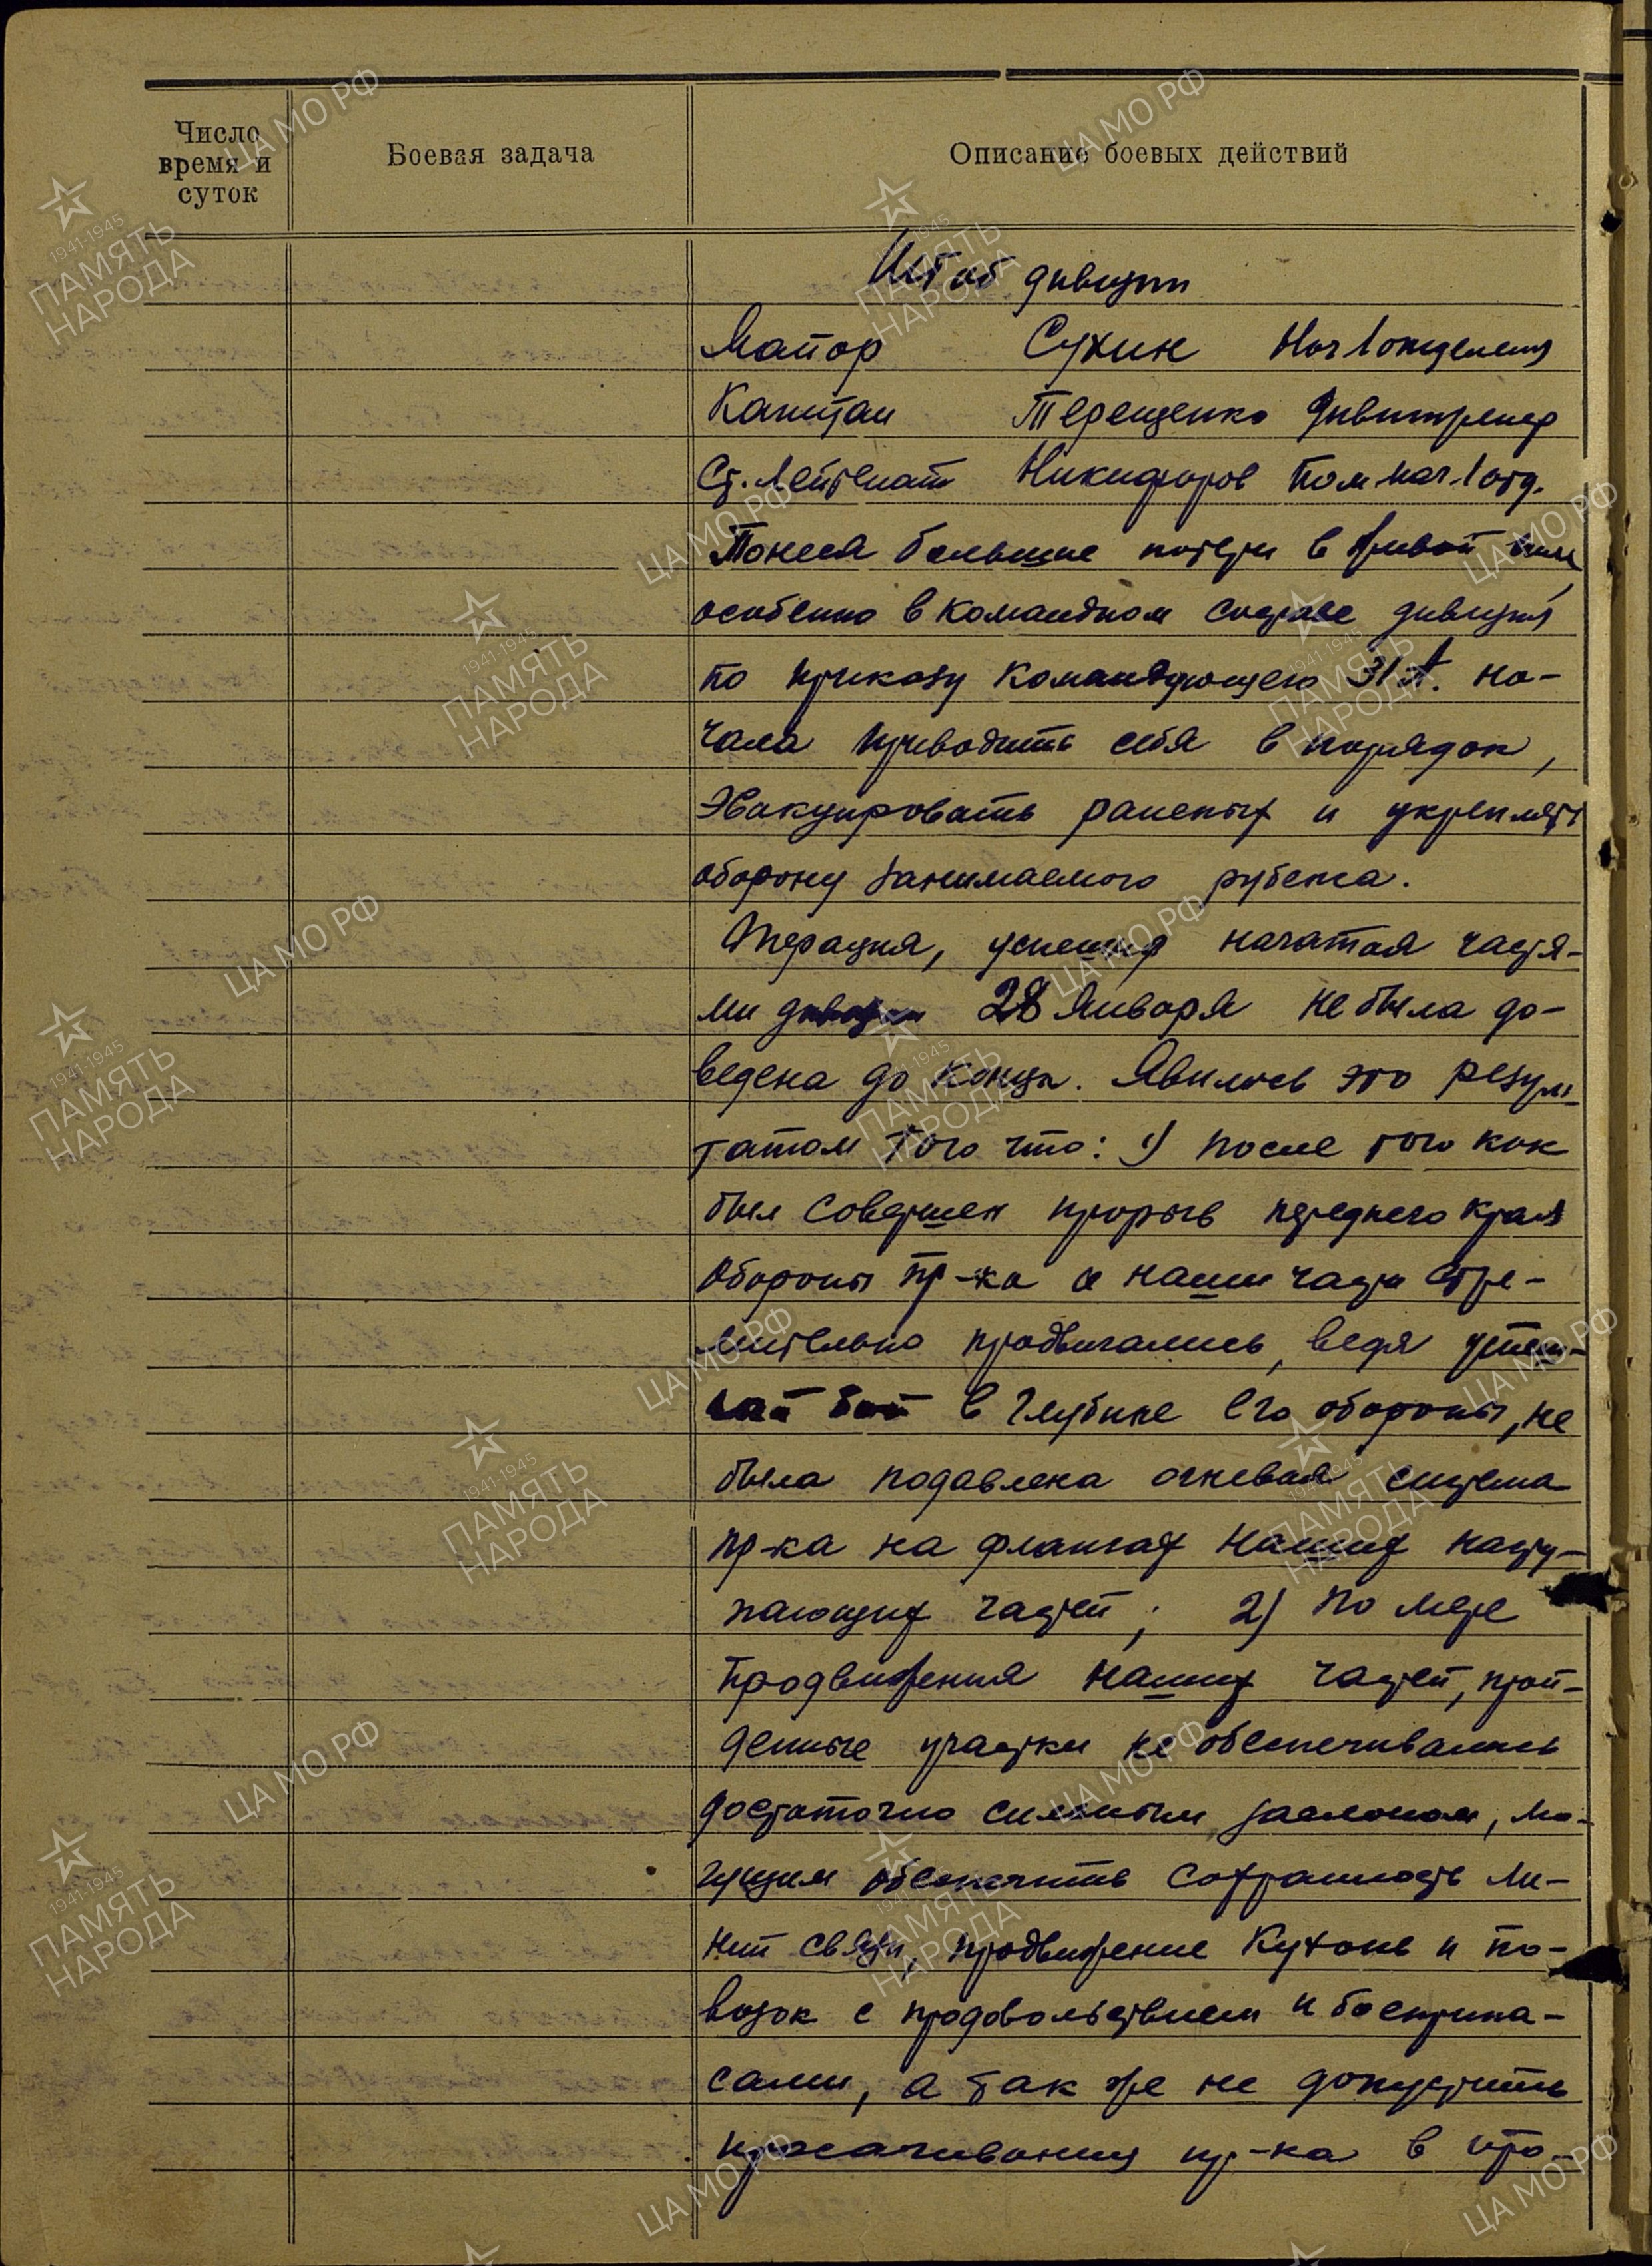 Число
время и
суток
Боевая задача
Описание боевых действий
Штаб дивизии
Майор Сухин Нач 1 отделения
Капитан Терещенко Дивинженер
Ст. Лейтенант Никифоров Пом нач. 1 отд.
Понеся большие потери в живой силе,
особенно в командном составе дивизия
по приказу командующего 31 А. на-
чала приводить себя в порядок,
эвакуировать раненых и укреплять
оборону занимаемого рубежа.
Операция, успешно начатая частя-
ми дивизии 28 января не была до-
ведена до конца. Явилось это резуль-
татом того что: 1) после того как
был совершен прорыв переднего края
обороны пр-ка и наши части стре-
мительно продвигались, ведя успеш-
ный бой в глубине его обороны, не
была подавлена огневая система
пр-ка на флангах наших насту-
пающих частей; 2) По мере
продвижения наших частей, прой-
денные участки не обеспечивались
достаточно сильным заслоном, мо-
гущим обеспечить сохранность ли-
ний связи, продвижение кухонь и по-
возок с продовольствием и боеприпа-
сами, а так же не допустить
просачивания пр-ка в
ЦА МО РФ
1941-1945
ПАМЯТЬ
НАРОДА